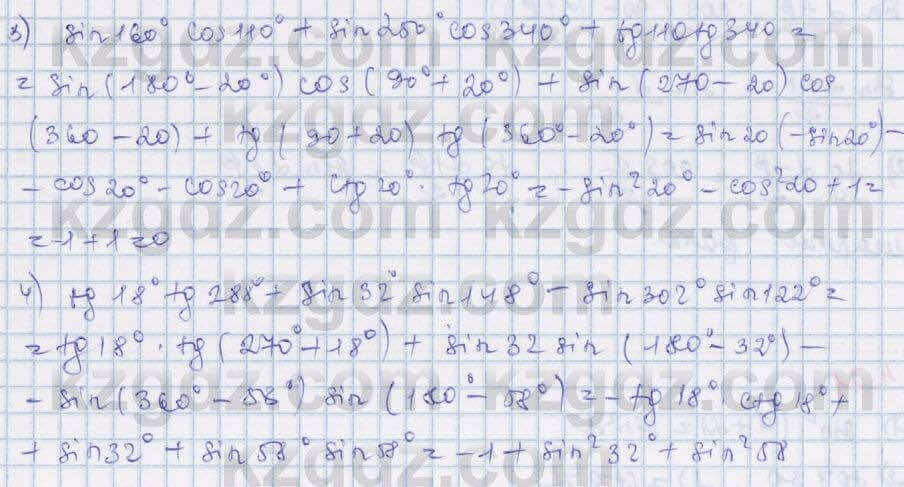 3) sin 160° cos 110° + sin 250° cos 340° + tg 110 tg 340 =
= sin (180° - 20°) cos (90° + 20°) + sin (270 - 20) cos
(360 - 20) + tg (90 + 20) tg (360° - 20°) = sin 20 (-sin 20°) -
- cos 20° - cos 20° + ctg 20° · tg 20° = - sin² 20° - cos² 20 + 1 =
= -1 + 1 = 0
4) tg 18° tg 288° + sin 32° sin 148° - sin 302° sin 122° =
= tg 18° · tg (270° + 18°) + sin 32 sin (180° - 32°) -
- sin (360° - 58°) sin (180° - 58°) = - tg 18° · ctg 18° +
+ sin 32° + sin 58° sin 58° = -1 + sin² 32° + sin² 58
kzgdz.com